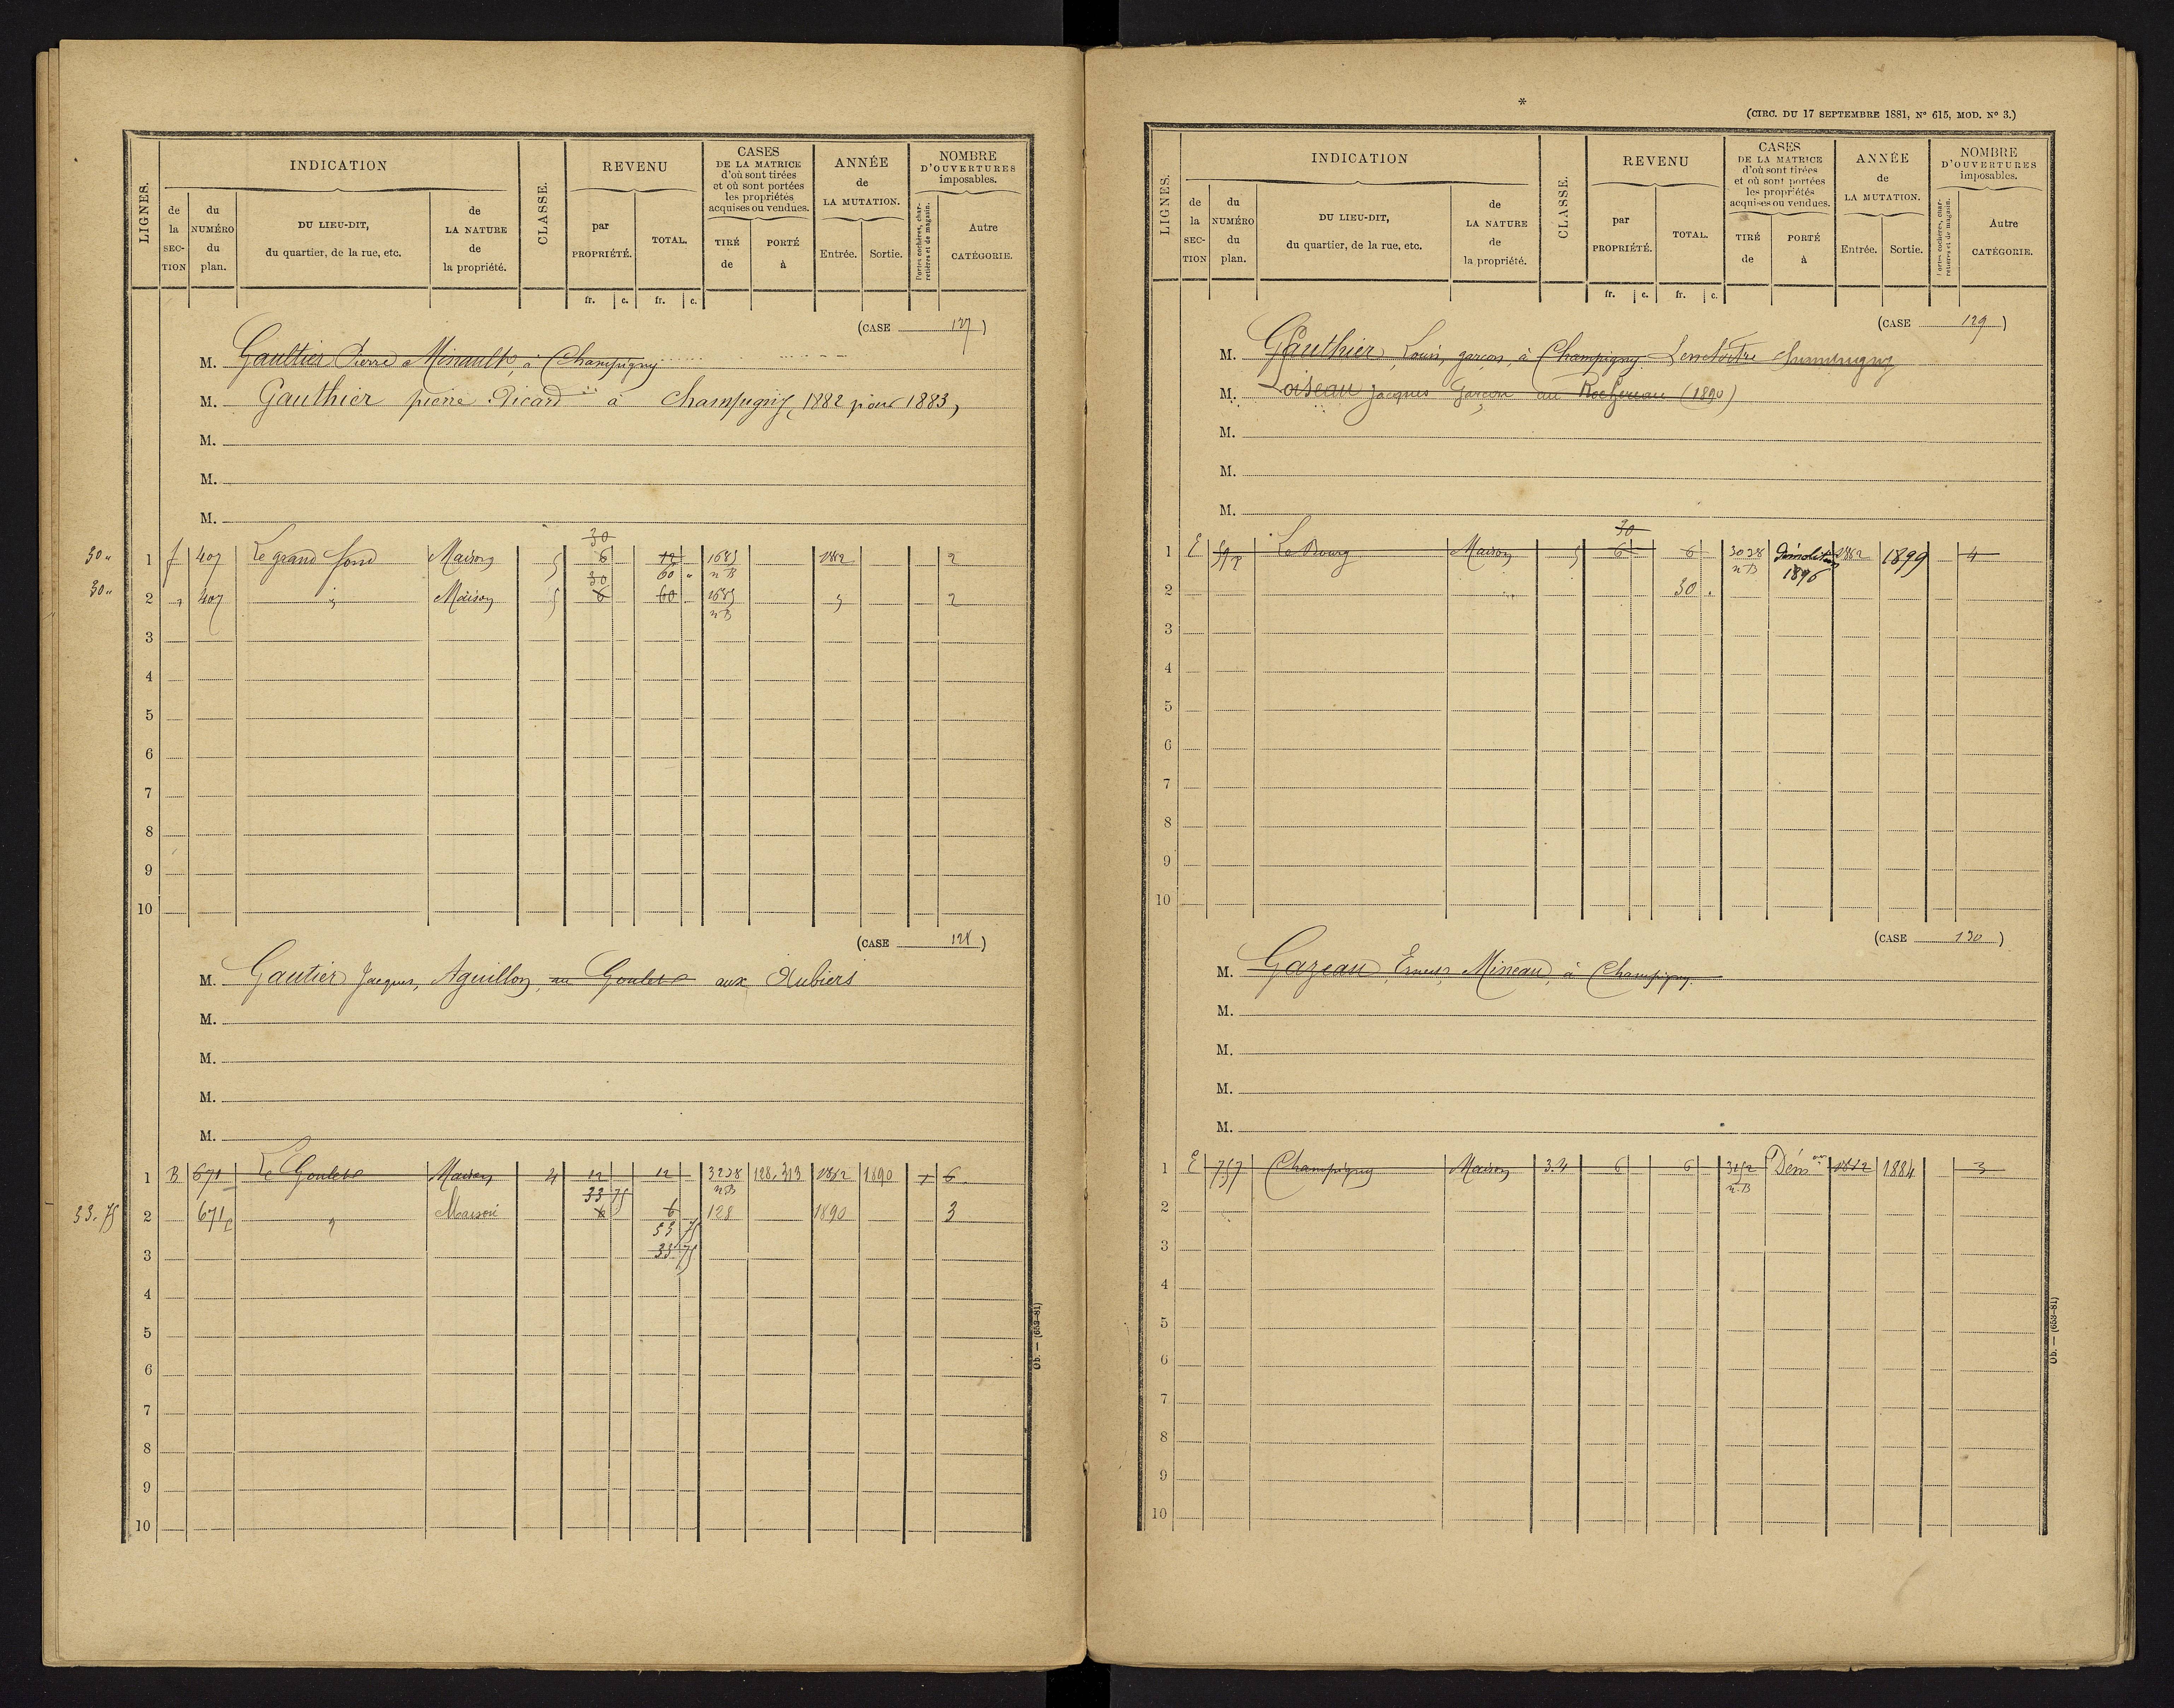 LIGNES.
INDICATION
CLASSE.
REVENU
CASES
DE LA MATRICE
d'où sont tirées
et où sont portées
les propriétés
acquises ou vendues.
ANNÉE
de
LA MUTATION.
NOMBRE
D'OUVERTURES
imposables.
de la SEC- TION
du NUMÉRO du plan.
DU LIEU-DIT,
du quartier, de la rue, etc.
de LA NATURE de la propriété.
par PROPRIÉTÉ.
TOTAL.
TIRÉ de
PORTÉ à
Entrée.
Sortie.
Portes cochères, char-
retières et de magasin.
Autre CATÉGORIE.
fr. c. fr. c.
(CASE 127)
M. Gaultier Pierre Minault, à Champigny
M. Gauthier pierre Picard à Champigny, 1882 pour 1883,
M.
M.
M.
30
30 " 1 f 407 Le grand fond Maison 5 6 12 1685 1882 2
30 60 " n B
30 " 2 " 407 " Maison 5 6 60 1685 " 2
n B
3
4
5
6
7
8
9
10
(CASE 128)
M. Gautier Jacques, Aguillon, au Goulet aux Aubiers
M.
M.
M.
M.
1 B 671 Le Goulet Maison 4 12 12 3228 128, 313 1882 1890 1 6
33 75 n B
33.75 2 671 " Maison 6 6 128 1890 3
33 75
3 33 75
4
5
6
7
8
9
10
Ob. — (653-81)
*
(CIRC. DU 17 SEPTEMBRE 1881, N° 615, MOD. N° 3.)
LIGNES.
INDICATION
CLASSE.
REVENU
CASES
DE LA MATRICE
d'où sont tirées
et où sont portées
les propriétés
acquises ou vendues.
ANNÉE
de
LA MUTATION.
NOMBRE
D'OUVERTURES
imposables.
de la SEC- TION
du NUMÉRO du plan.
DU LIEU-DIT,
du quartier, de la rue, etc.
de LA NATURE de la propriété.
par PROPRIÉTÉ.
TOTAL.
TIRÉ de
PORTÉ à
Entrée.
Sortie.
Portes cochères, char-
retières et de magasin.
Autre CATÉGORIE.
fr. c. fr. c.
(CASE 129)
M. Gauthier, Louis, garçon, à Champigny
M. Loiseau Jacques Garçon au Rochereau (1890)
M.
M.
M.
30
1 E Le Bourg Maison 5 6 6 3038 Démolition 1882 1899 4
n B 1896
2 30
3
4
5
6
7
8
9
10
(CASE 130)
M. Gazeau, Ernest, Mineau, à Champigny.
M.
M.
M.
M.
1 E 757 Champigny Maison 3.4 6 6 3152 Dém on 1882 1884 3
n.B
2
3
4
5
6
7
8
9
10
Ob. — (653-81)